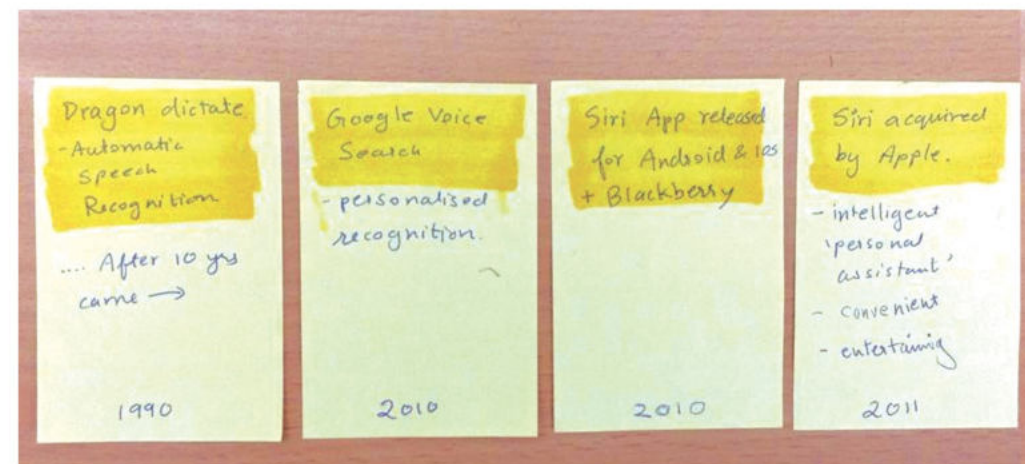 Dragon dictate
- Automatic
Speech
Recognition
.... After 10 yrs
came →
1990
Google Voice
Search
- personalised
recognition.
2010
Siri App released
for Android & IOS
+ Blackberry
2010
Siri acquired
by Apple.
- intelligent
'personal
assistant'
- convenient
- entertainig
2011